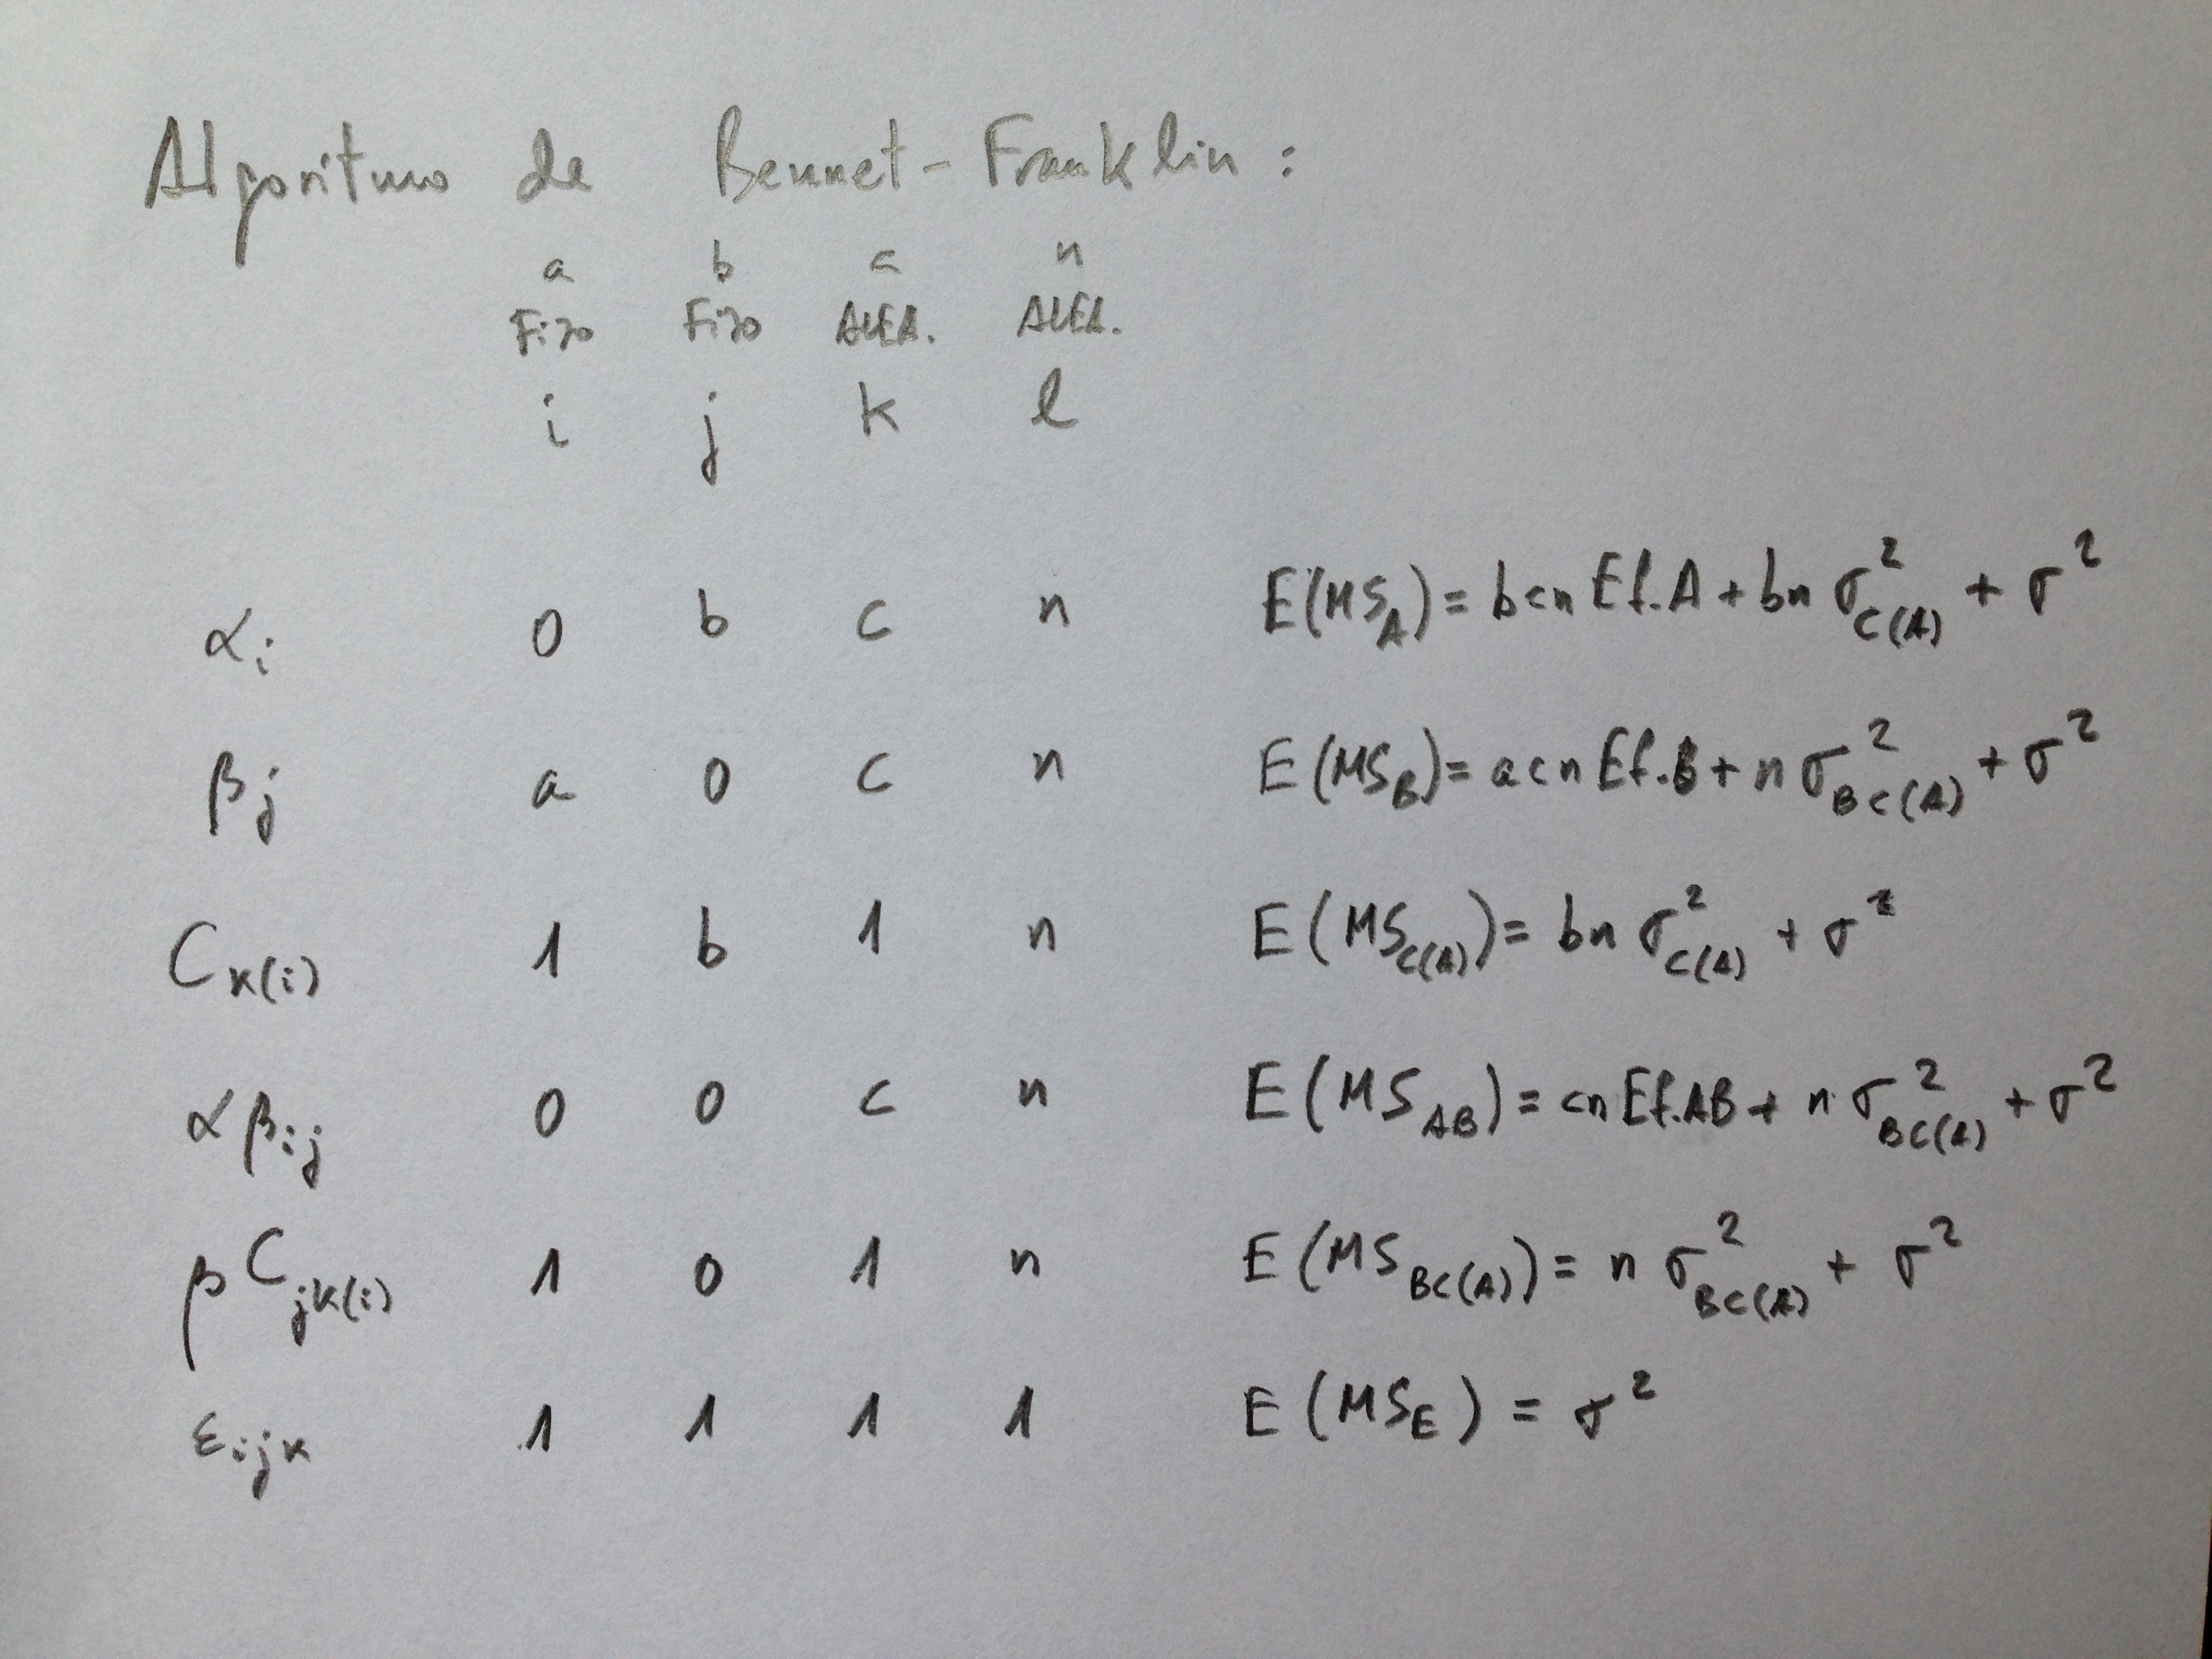 Algoritmo de Bennet-Franklin:
a b c n
Fijo Fijo ALEA. ALEA.
i j k l
αi 0 b c n E(MS_A) = bcn Ef.A + bn σ²_C(A) + σ²
βj a 0 c n E(MS_B) = acn Ef.B + n σ²_BC(A) + σ²
C_k(i) 1 b 1 n E(MS_C(A)) = bn σ²_C(A) + σ²
αβ_ij 0 0 c n E(MS_AB) = cn Ef.AB + n σ²_BC(A) + σ²
βC_jk(i) 1 0 1 n E(MS_BC(A)) = n σ²_BC(A) + σ²
ε_ijk 1 1 1 1 E(MS_E) = σ²